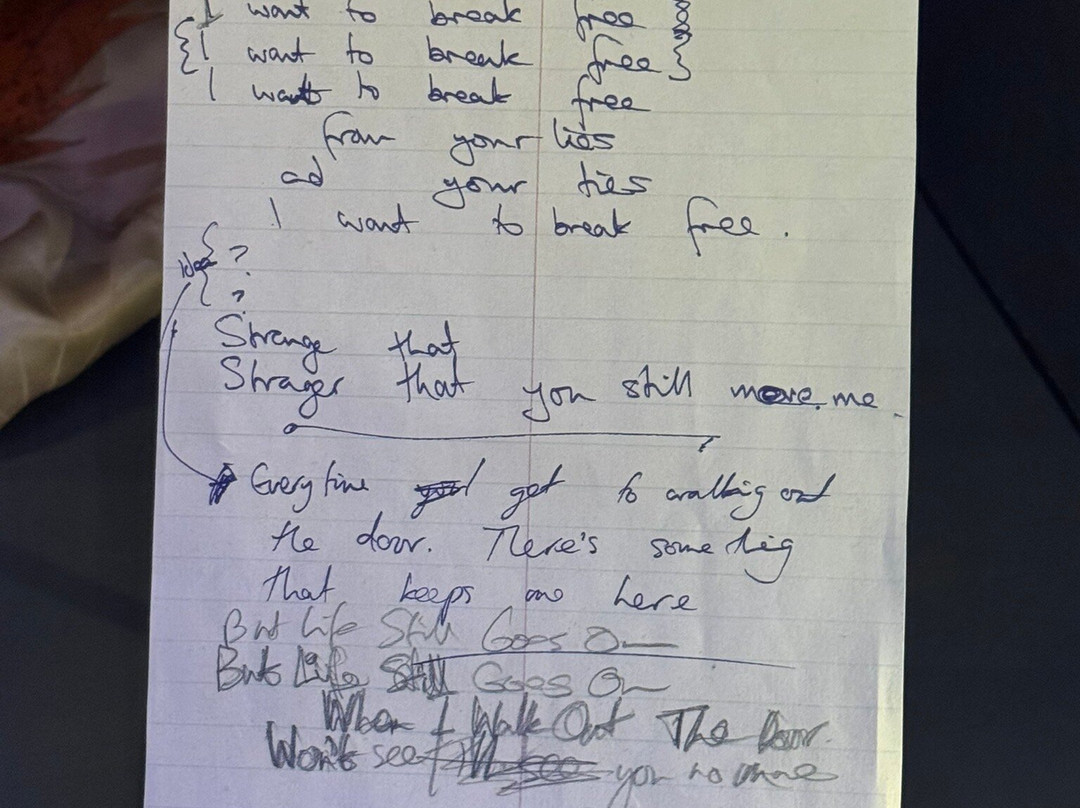 I want to break free
{I want to break free}
I want to break free
from your lies
ad your ties
I want to break free.
Idea { ?
?
Strange that
Strager that you still move me.
Every time I get to walking out
the door. There's something
that keeps me here
But Life Still Goes On
But Life Still Goes On
When I Walk Out The Door.
Won't see you no more